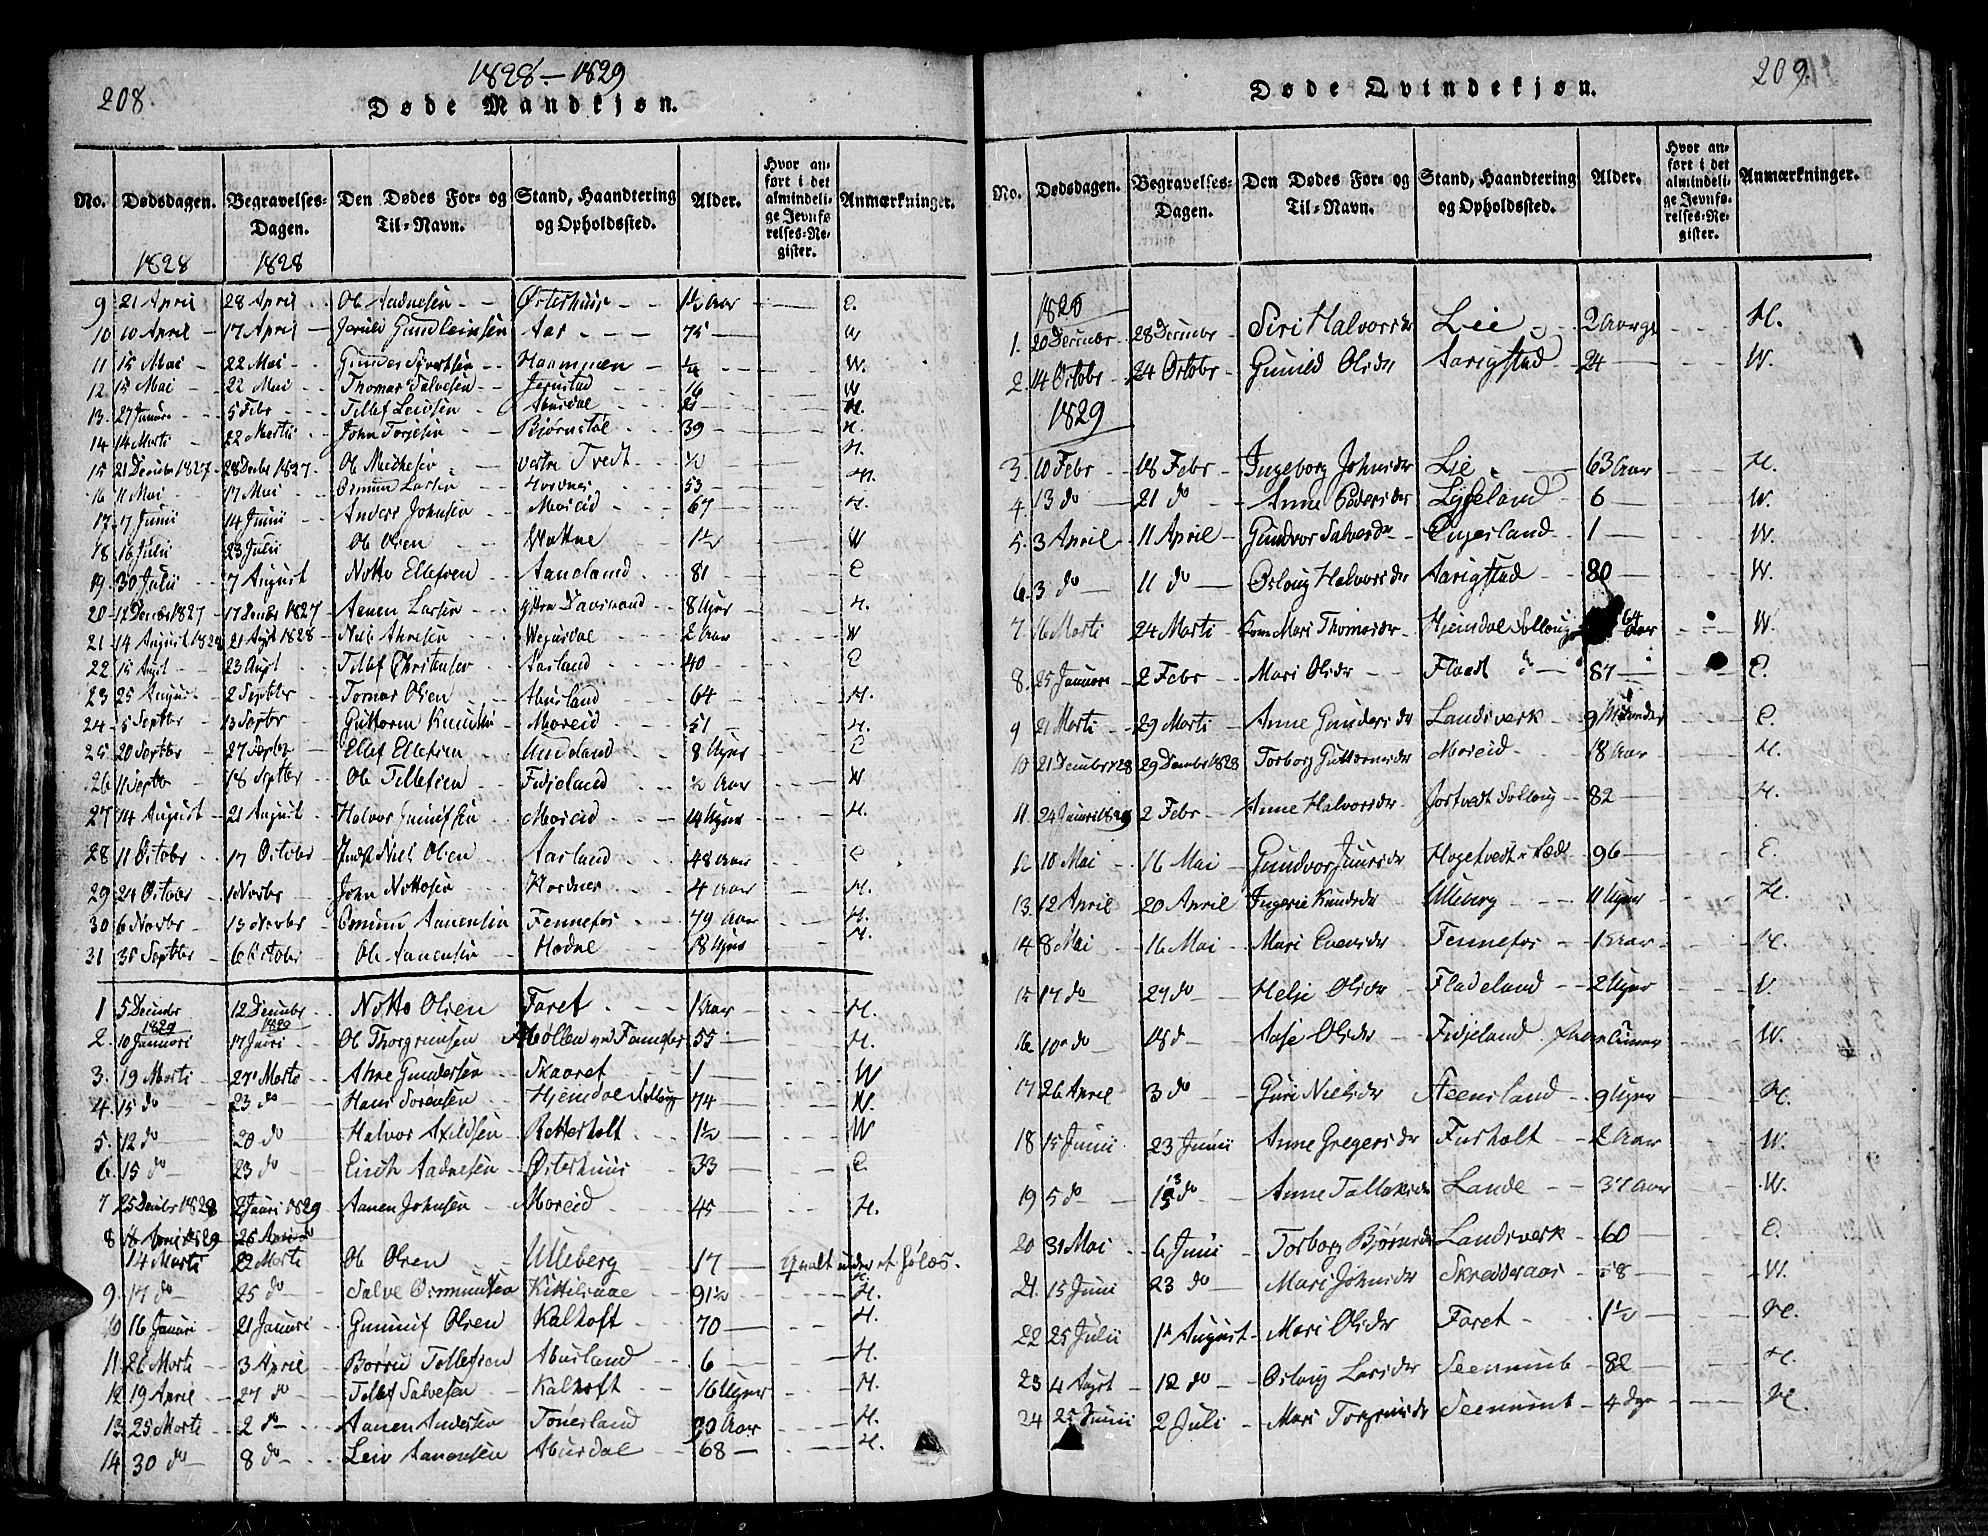 208.
1828 — 1829
Døde Mandkjøn.
No. Dødsdagen. Begravelses-Dagen. Den Dødes For- og Til-Navn. Stand, Haandtering og Opholdssted. Alder. Hvor anført i det almindelige Jevnførelses-Register. Anmærkninger.
1828 1828
9 21 April 28 April Ole Aadnesen Østerhuus 1½ Aar E.
10 10 April 17 April Gundleinsen Aas 75 W
11 15 Mai 22 Mai Gunder Syvertsen ¼ W.
12 15 Mai 22 Mai Thomas Salvesen Jerustad 16 W
13. 27 Januar 5 Febr Tellef Leivsen Abusdal 21 H.
14 14 Marti 22 Martii John Torjesen Bjørnstøl 39 H.
15 21 Decembr 1827 28 Decbr 1827 Ole vestre Tvedt ½ H.
16 11 Mai 17 Mai Osmun Larsen Hordnes 53 H.
17 7 Junii 14 Junii Anders Johnsen Moreid 67 H.
18 16 Julii 23 Julii Ole Olsen Vatne 1½ W
19. 30 Julii 7 August Notto Ellefsen Aaneland 81 E
20 12 Decbr 1827 17 Decbr 1827 Aanen Larsen 8 Uger H.
21 14 August 1828 21 Augt 1828 Niels Wegusdal 2 Aar W
22 15 Augt 23 Augt Tellef Christensen Aasland 40 E
23 25 August 2 Septbr Tomas Olsen Abusland 64 H.
24 5 Septbr 13 Septbr Guttorm Knudsen Moreid 51 H.
25 20 Septbr 27 Septbr Ellef Ellefsen 8 Uger E
26 11 Septbr 18 Septbr Ole Tellefsen Fidjeland ½ Aar W
27 14 August 21 August Halvor Gunufsen Moreid 14 Uger H.
28 11 Octobr 17 Octobr Niels Olsen Aasland 48 Aar E
29 24 Octobr 1 Novbr John Nottosen Hordnes 4 Aar H.
30 6 Novbr 13 Novbr Osmund Aanensen Fennefos 79 Aar H.
31 30 Septbr 6 Octobr Ole Aanensen Hodne 18 Uger H.
1 5 Decembr 12 Decembr Notto Olsen Faret 1 Aar H.
1829 1829
2. 10 Januari 17 Januari Ole Thorgrimsen Møllen ved Fennefos 55 H.
3. 19 Marti 27 Marti Ahne Gundersen Skaaret 1 W
4. 15 do 23 do Hans Sørensen Hjemdal Sollaug 74 W.
5. 12 do 20 do Halvor Axildsen Retterholt 1½ W
6. 15 do 23 do Eirik Aadnesen Østerhuus 33 E.
7 25 Decembr 1828 2 Januari 1829 Aanen Johnsen Moreid 45 H.
8 14 Marti 22 Marti Ole Olsen Ulleberg 17 qvalt under et Hølæs.
9. 17 do 25 do Salve Osmundsen Kittelsaae 91½ H.
10 16 Januari 21 Januari Gunnuf Olsen Kalhoft 70 H.
11 26 Marti 3 April Børru Tellefsen Abusland 6 H.
12 19 April 27 do Tellef Salvesen Kalhoft 16 Uger H.
13. 25 Marti 2 do Aanen Andersen Tønesland 90 Aar H.
14. 30 do 8 do Leiv Aanonsen Abusdal 68 H.
209.
Døde Qvindekjøn.
No. Dødsdagen. Begravelses-Dagen. Den Dødes For- og Til-Navn. Stand, Haandtering og Opholdssted. Alder. Hvor anført i det almindelige Jevnførelses-Register. Anmærkninger.
1. 20 Decembr 28 Decembr Siri Halvorsdr Lie 2 H.
2. 14 Octobr 24 Octobr Gunild Olsdr Aarigstad 24 W.
1829
3. 10 Febr 18 Febr Ingeborg Johnsdr Lie 63 Aar H.
4 13 do 21 do Anne Pedersdr Lygeland 6 W.
5. 3 April 11 April Gundvor Salvesdr Engesland 1 W.
6. 3 do 11 do Osloug Halvorsdr Aarigstad 80 W.
7 16 Marti 24 Marti Kone Mari Thomasdr Hjemdal Solloug 64 Aar W.
8. 25 Januari 2 Febr Mari Olsdr Flaadt 87 E.
9 21 Marti 29 Marti Anne Gundersdr Landsverk 9 Maaneder E.
10 21 Decembr 28 29 Decembr 1828 Torborg Guttormsdr Moreid 18 Aar H.
11 24 Januari 1829 2 Febr Anne Halvorsdr Jortvedt Solloug 82 H.
12 10 Mai 16 Mai Gundvor Juursdr Hogetvedt 96 E.
13. 12 April 20 April Ingerie Knudsdr Ulleberg 11 Uger H.
14 8 Mai 16 Mai Mari Evensdr Fennefos 1 Aar H.
15 17 do 27 do Helje Olsdr Fladeland 2 Uger W.
16 10 do 18 d Aase Olsdr Fidjeland W.
17 26 April 3 do Guri Nielsdr Steensland 9 Uger H.
18 15 Junii 23 Junii Anne Gregersdr Fusholt 2 Aar W.
19 5 do 13 do Anne Tallaksdr Lande 37 Aar W.
20 31 Mai 6 Junii Torborg Bjørnsdr Landsverk 60 E.
21. 15 Juni 23 do Mari Johnsdr Skredderaas 58 W.
22 25 Julii 1 August Mari Olsdr Faret 1½ H.
23 4 Augt 12 do Osloug Larsdr 82 H.
24 25 Junii 2 Juli Mari Torgrimsdr 4 dge H.